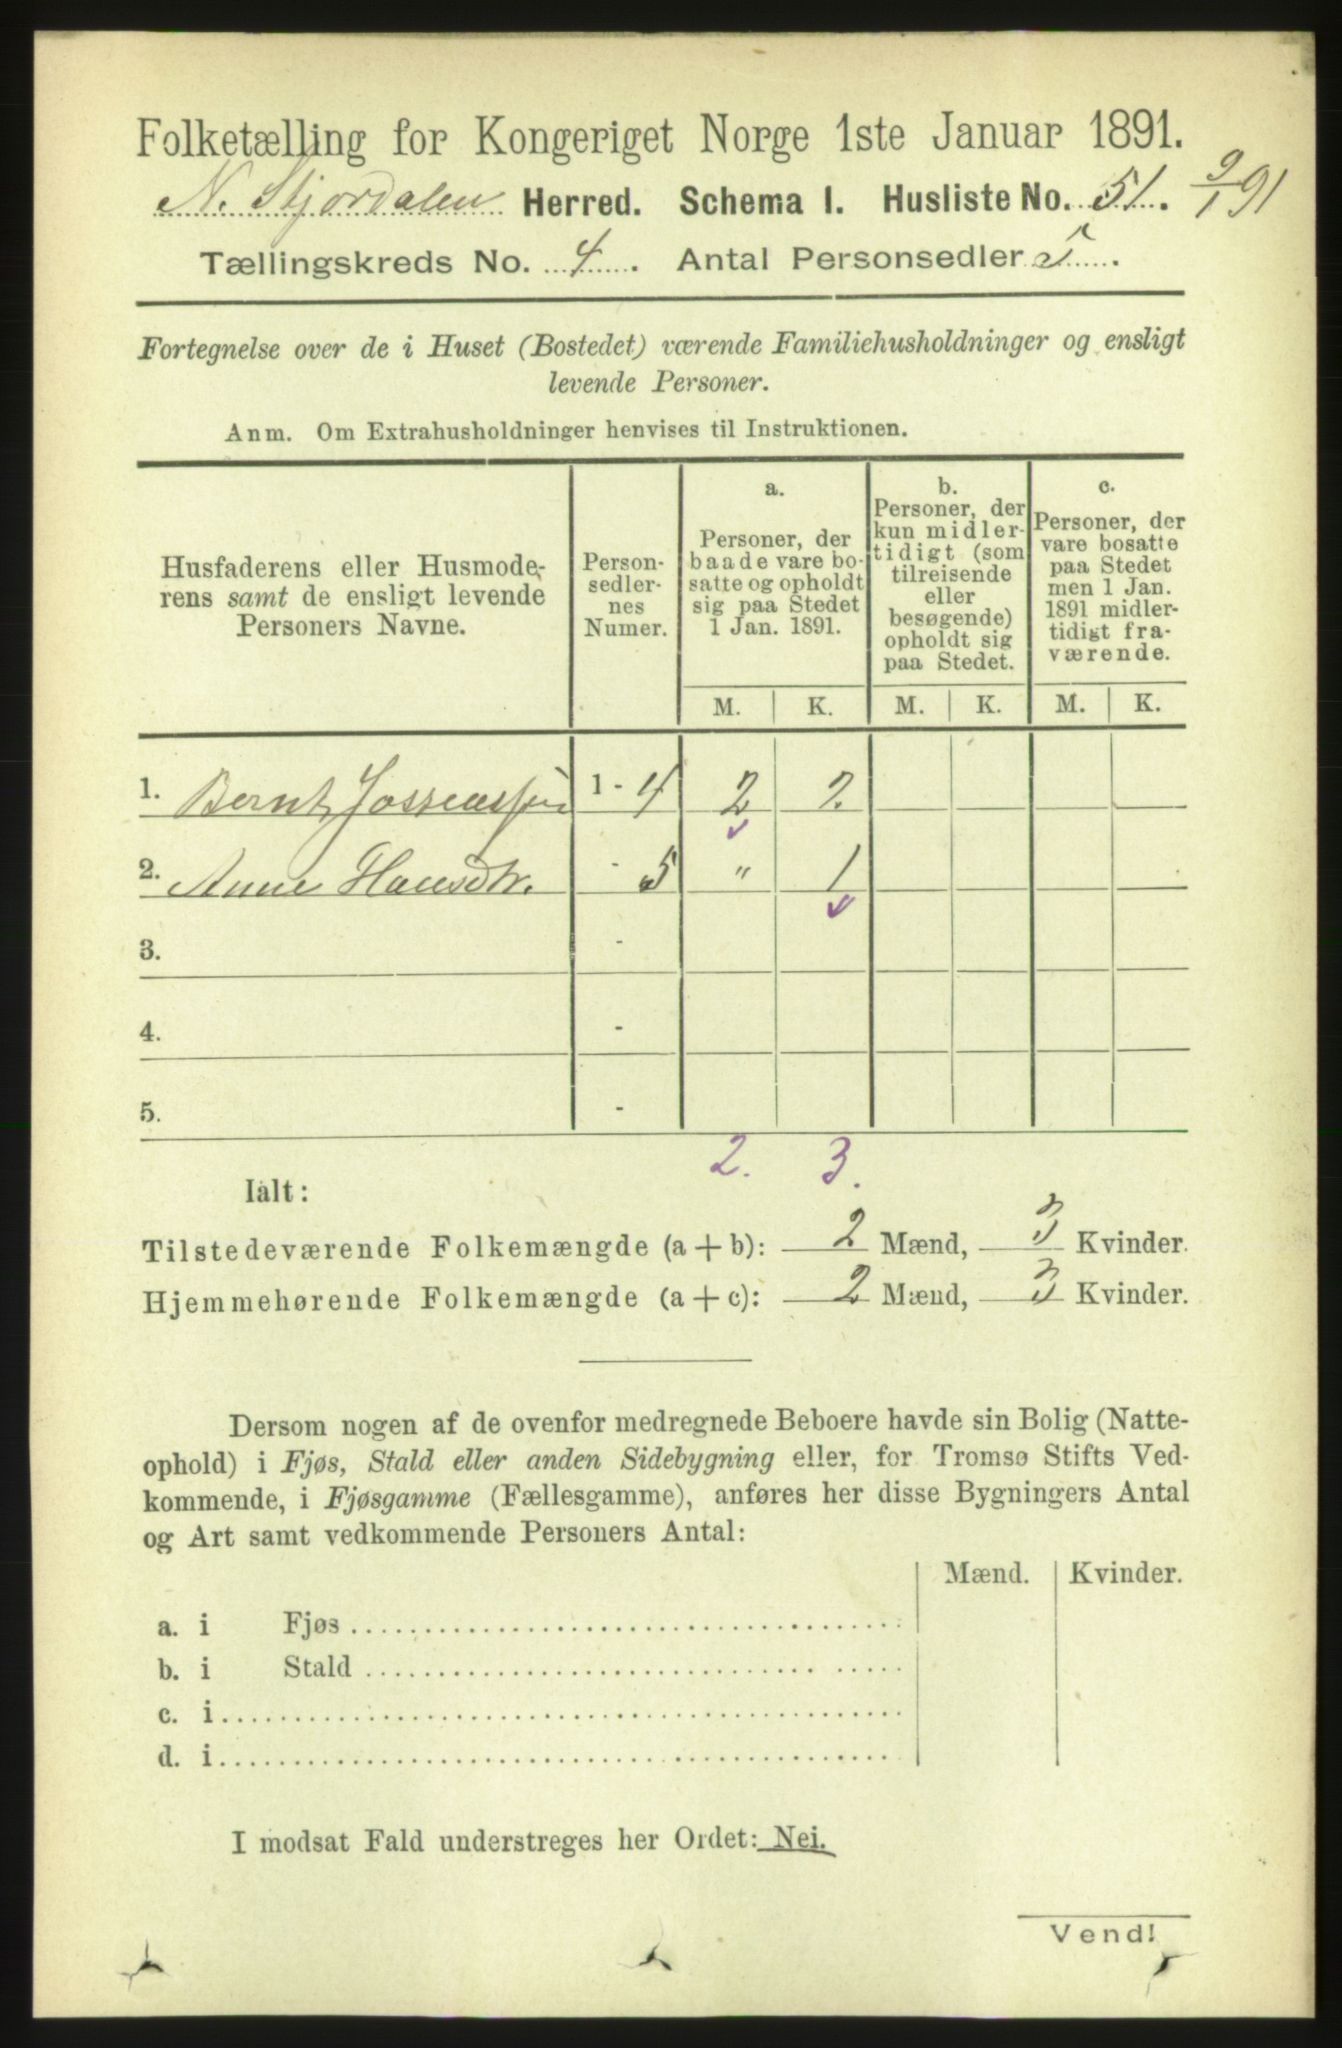 Folketælling for Kongeriget Norge 1ste Januar 1891.
N. Stjordalen Herred. Schema 1. Husliste No. 51. 9/1 91
Tællingskreds No. 4. Antal Personsedler 5.
Fortegnelse over de i Huset (Bostedet) værende Familiehusholdninger og ensligt
levende Personer.
Anm. Om Extrahusholdninger henvises til Instruktionen.
Husfaderens eller Husmode-
rens samt de ensligt levende
Personers Navne.
Person-
sedler-
nes
Numer.
a.
Personer, der
baade vare bo-
satte og opholdt
sig paa Stedet
1 Jan. 1891.
b.
Personer, der
kun midler-
tidigt (som
tilreisende
eller
besøgende)
opholdt sig
paa Stedet.
c.
Personer, der
vare bosatte
paa Stedet
men 1 Jan.
1891 midler-
tidigt fra-
værende.
M. K. M. K. M. K.
1. Bernt 1 - 4 2 2.
2. Anne Hansdtr. - 5 " 1
3. -
4. -
5. -
2. 3.
Ialt:
Tilstedeværende Folkemængde (a + b): 2 Mænd, 3 Kvinder.
Hjemmehørende Folkemængde (a + c): 2 Mænd, 3 Kvinder.
Dersom nogen af de ovenfor medregnede Beboere havde sin Bolig (Natte-
ophold) i Fjøs, Stald eller anden Sidebygning eller, for Tromsø Stifts Ved-
kommende, i Fjøsgamme (Fællesgamme), anføres her disse Bygningers Antal
og Art samt vedkommende Personers Antal:
Mænd. Kvinder.
a. i Fjøs
b. i Stald
c. i
d. i
I modsat Fald understreges her Ordet: Nei.
Vend!